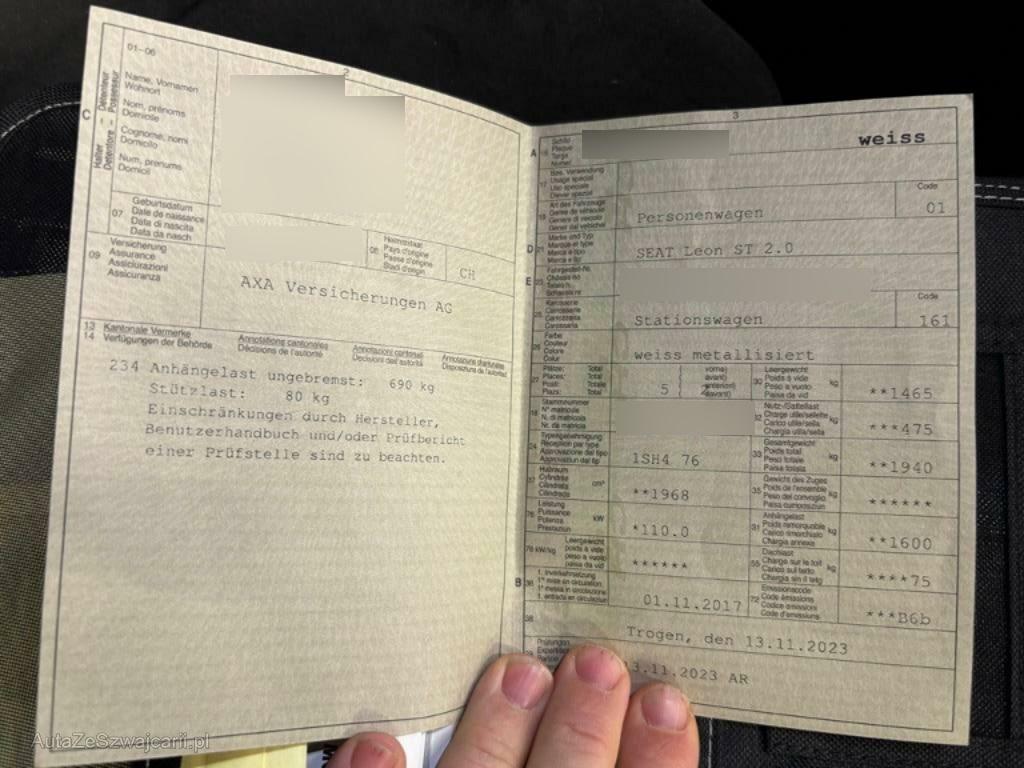 01-06
2
C
Halter
Detentore
Détenteur
Possesseur
Name, Vornamen
Wohnort
Nom, prénoms
Domicile
Cognome, nomi
Domicilio
Num, prenums
Domicil
07
Geburtsdatum
Date de naissance
Data di nascita
Data da nasch
08
Heimatstaat
Pays d'origine
Paese d'origine
Stadi d'origin
CH
09
Versicherung
Assurance
Assicurazioni
Assicuranza
AXA Versicherungen AG
13 Kantonale Vermerke
14 Verfügungen der Behörde
Annotations cantonales
Décisions de l'autorité
Annotazioni cantonali
Decisioni dell'autorità
Annotaziuns chantunalas
Disposiziuns da l'autoritad
234 Anhängelast ungebremst: 690 kg
Stützlast: 80 kg
Einschränkungen durch Hersteller,
Benutzerhandbuch und/oder Prüfbericht
einer Prüfstelle sind zu beachten.
3
A
Schild
Plaque
Targa
Numer
weiss
17
Bes. Verwendung
Usage spécial
Uso speciale
Diever spezial
19
Art des Fahrzeugs
Genre de véhicule
Genere di veicolo
Gener dal vehichel
Personenwagen
Code
01
D
21
Marke und Typ
Marque et type
Marca e tipo
Marca e tip
SEAT Leon ST 2.0
E
23
Fahrgestell-Nr.
Châssis no
Telaio n.
25
Karosserie
Carrosserie
Carrozzeria
Carossaria
Stationswagen
Code
161
26
Farbe
Couleur
Colore
Colur
weiss metallisiert
27
Plätze: Total
Places: Total
Posti: Totale
Plazs: Total
5
vorne)
avant)
anteriori)
davant)
2
30
Leergewicht
Poids à vide
Peso a vuoto
Paisa da vid
kg
**1465
18
Stammnummer
N° matricule
N. di matricola
Nr. da matricla
32
Nutz-/Sattellast
Charge utile/sellette
Carico utile/sella
Chargia utila/sella
kg
***475
24
Typengenehmigung
Réception par type
Approvazione del tipo
Approvaziun dal tip
1SH4 76
33
Gesamtgewicht
Poids total
Peso totale
Paisa totala
kg
**1940
37
Hubraum
Cylindrée
Cilindrata
Cilindrada
cm³
**1968
35
Gewicht des Zuges
Poids de l'ensemble
Peso del convoglio
Paisa cumposiziun
kg
******
76
Leistung
Puissance
Potenza
Prestaziun
kW
*110.0
31
Anhängelast
Poids remorquable
Carico rimorchiato
Chargia annexa
kg
**1600
78 kW/kg
Leergewicht
poids à vide
peso a vuoto
paisa da vid
******
55
Dachlast
Charge sur le toit
Carico sul tetto
Chargia sin il tetg
kg
****75
B
36
1. Inverkehrsetzung
1re mise en circulation
1a messa in circolazione
1. entrada en circulaziun
01.11.2017
72
Emissionscode
Code émissions
Codice emissioni
Code d'emissiuns
***B6b
38
Trogen, den 13.11.2023
39
Prüfungen
13.11.2023 AR
AutaZeSzwajcarii.pl